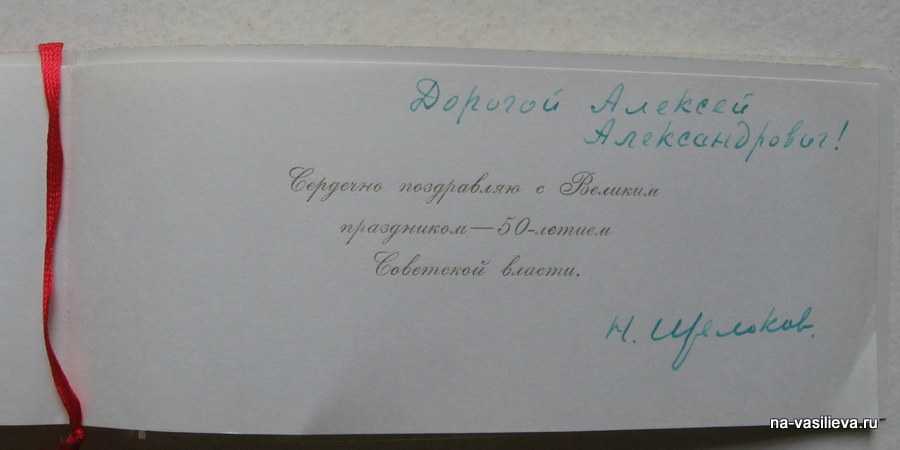 Дорогой Алексей
Александрович!
Сердечно поздравляю с Великим
праздником — 50-летием
Советской власти.
Н. Щелоков.
na-vasilieva.ru